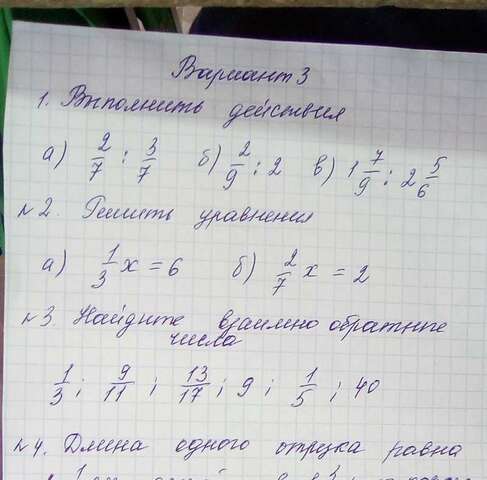 Вариант 3
1. Выполнить действия
а) 2/7 : 3/7 б) 2/9 : 2 в) 1 7/9 : 2 5/6
№2. Решить уравнения
а) 1/3 x = 6 б) 2/7 x = 2
№3. Найдите взаимно обратные
числа
1/3 ; 9/11 ; 13/17 ; 9 ; 1/5 ; 40
№4. Длина одного отрезка равна